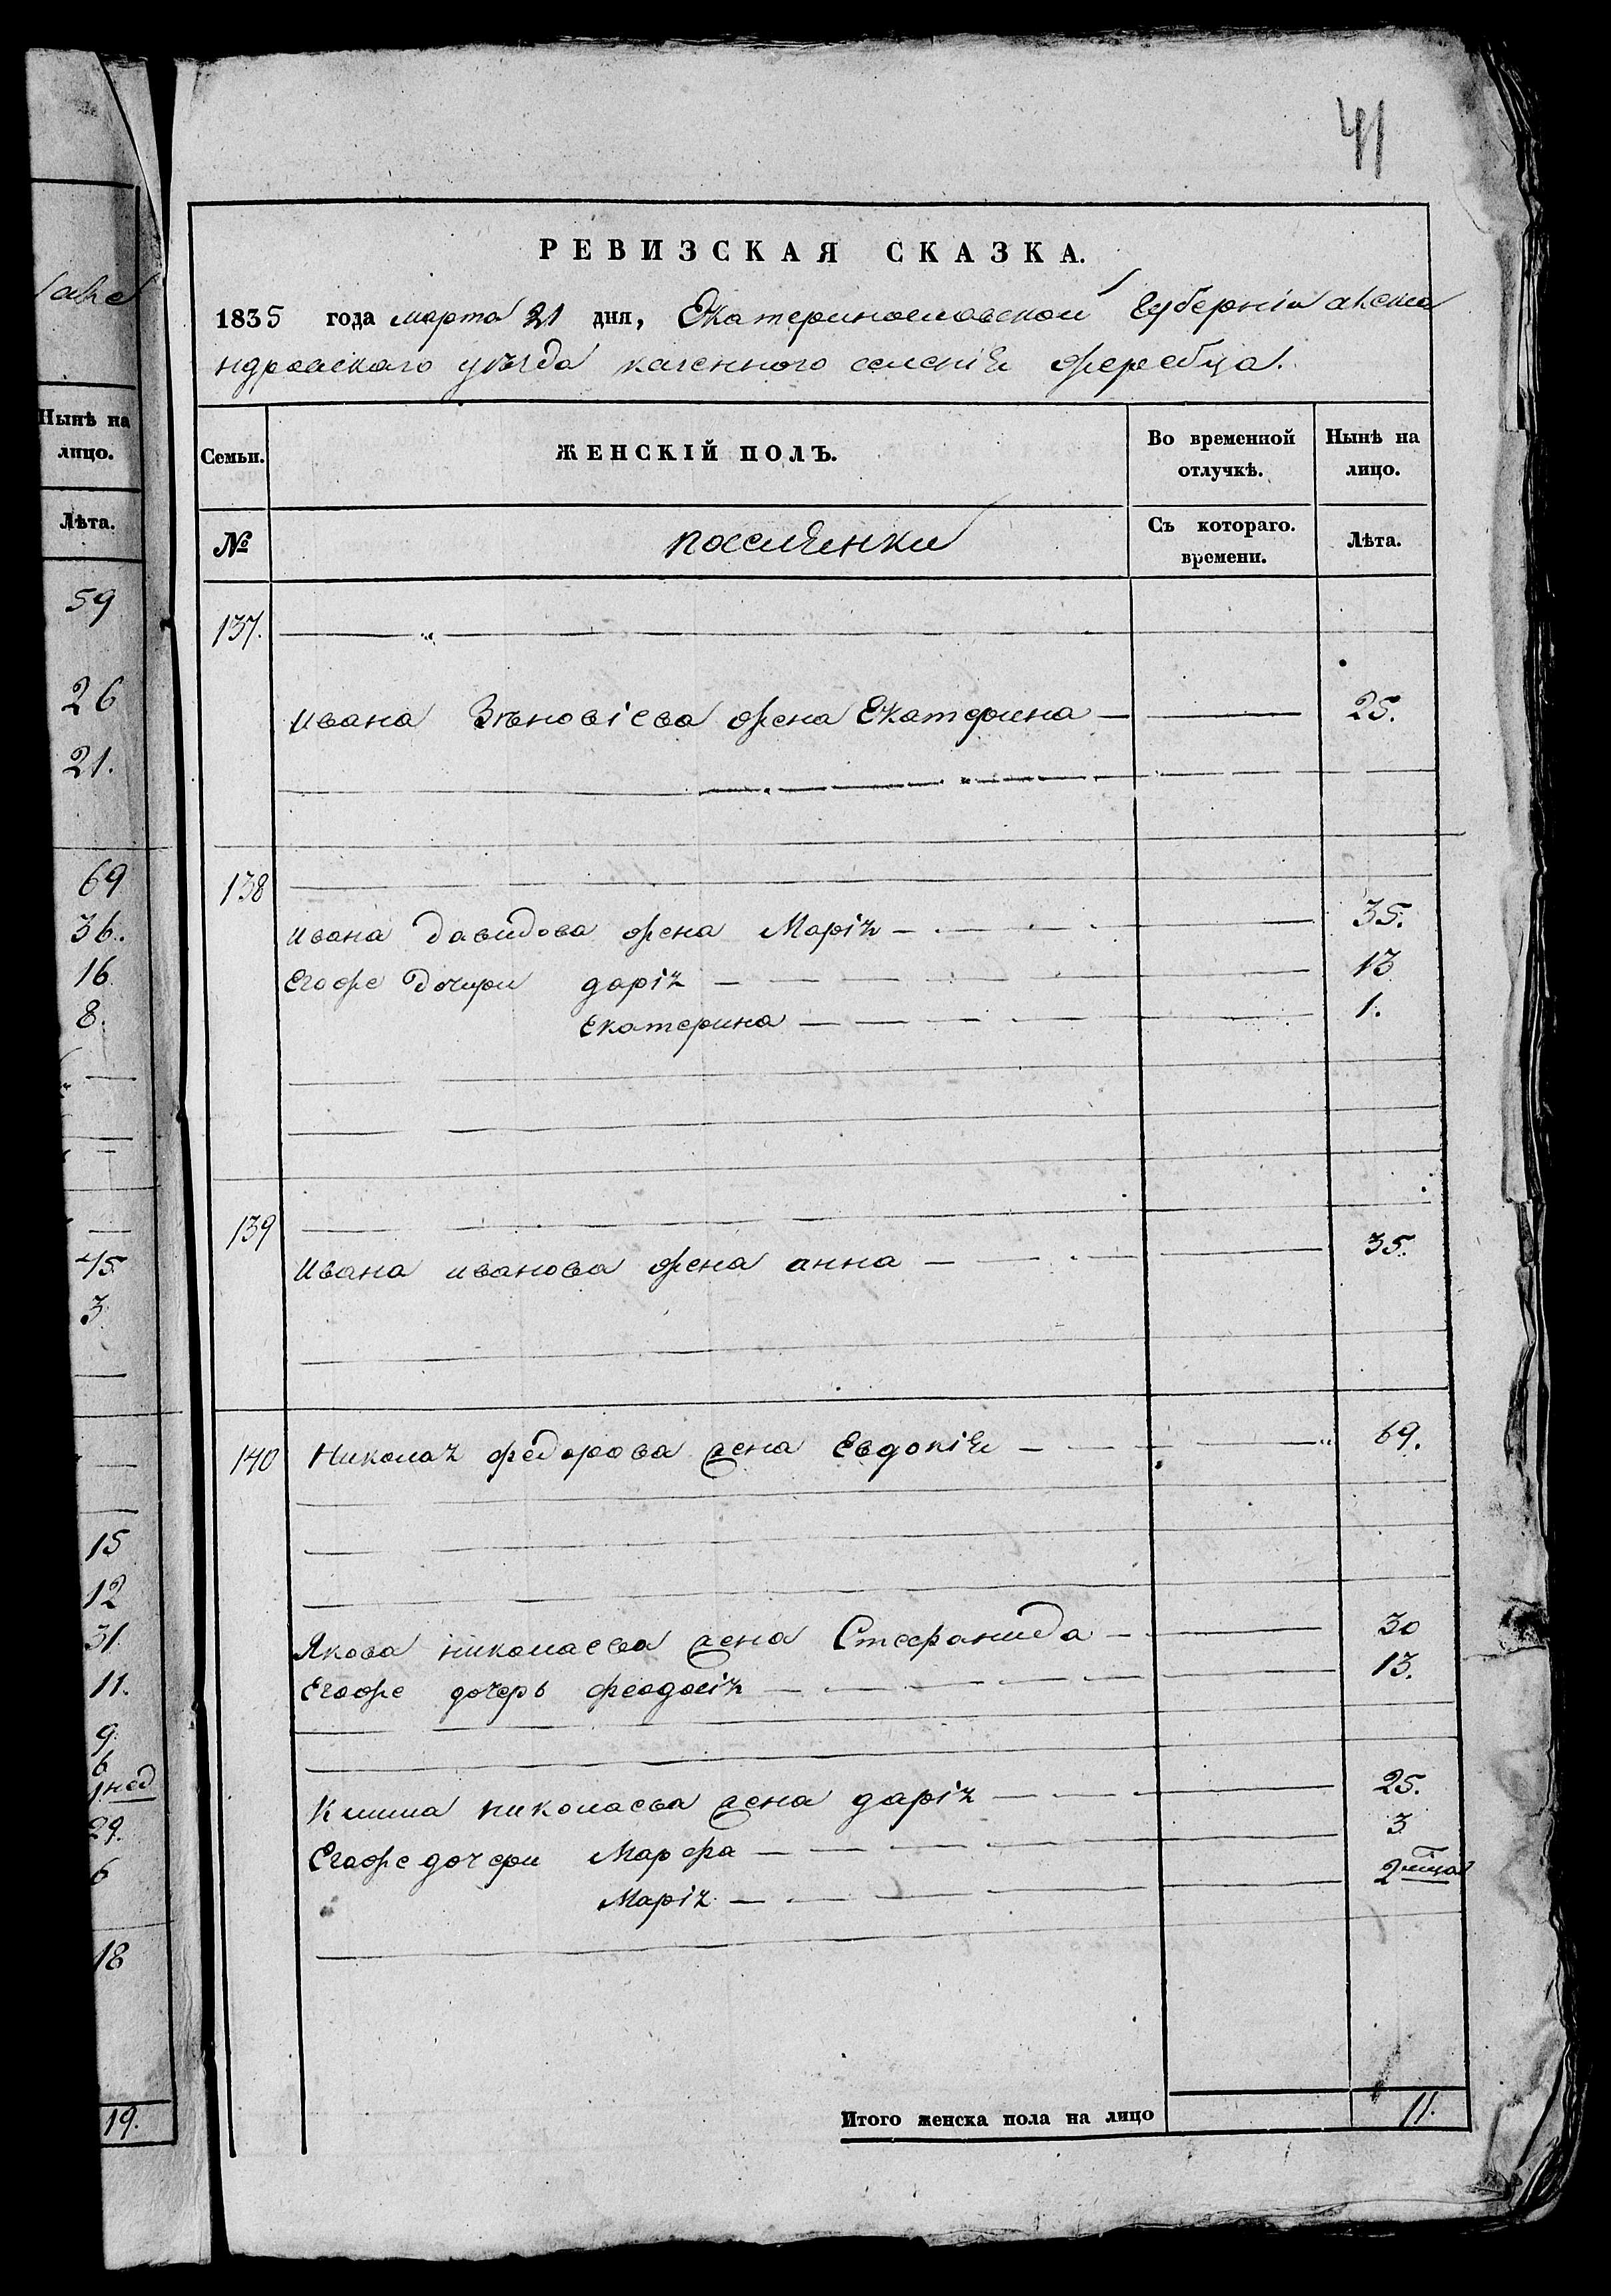 41
РЕВИЗСКАЯ СКАЗКА.
1835 года марта 21 дня, Екатеринославской Губерніи алекса
ндровскаго уѣзда казенного селенія жеребца.
Семьи.
ЖЕНСКІЙ ПОЛЪ.
Во временной отлучкѣ.
Нынѣ на лицо.
№
поселянки
Съ котораго. времени.
Лѣта.
137.
Ивана Зѣновіева жена Екатерина — 25.
138
Ивана давидова жена Марія — 35.
Егоже дочери дарія — 13
Екатерина — 1.
139
Ивана иванова жена анна — 35.
140 Николая федорова жена Евдокія — 69.
Якова николаева жена Стефанида — 30
Егоже дочерь феодосія — 13.
Клима николаева жена дарія — 25.
Егоже дочери Марфа — 3
Марія — 2 мѣца
Итого женска пола на лицо 11.
Нынѣ на
лицо.
Лѣта.
59
26
21.
69
36.
16
8.
45
3
15
12
31.
11.
9
6
1 нед
29.
6
18
19.